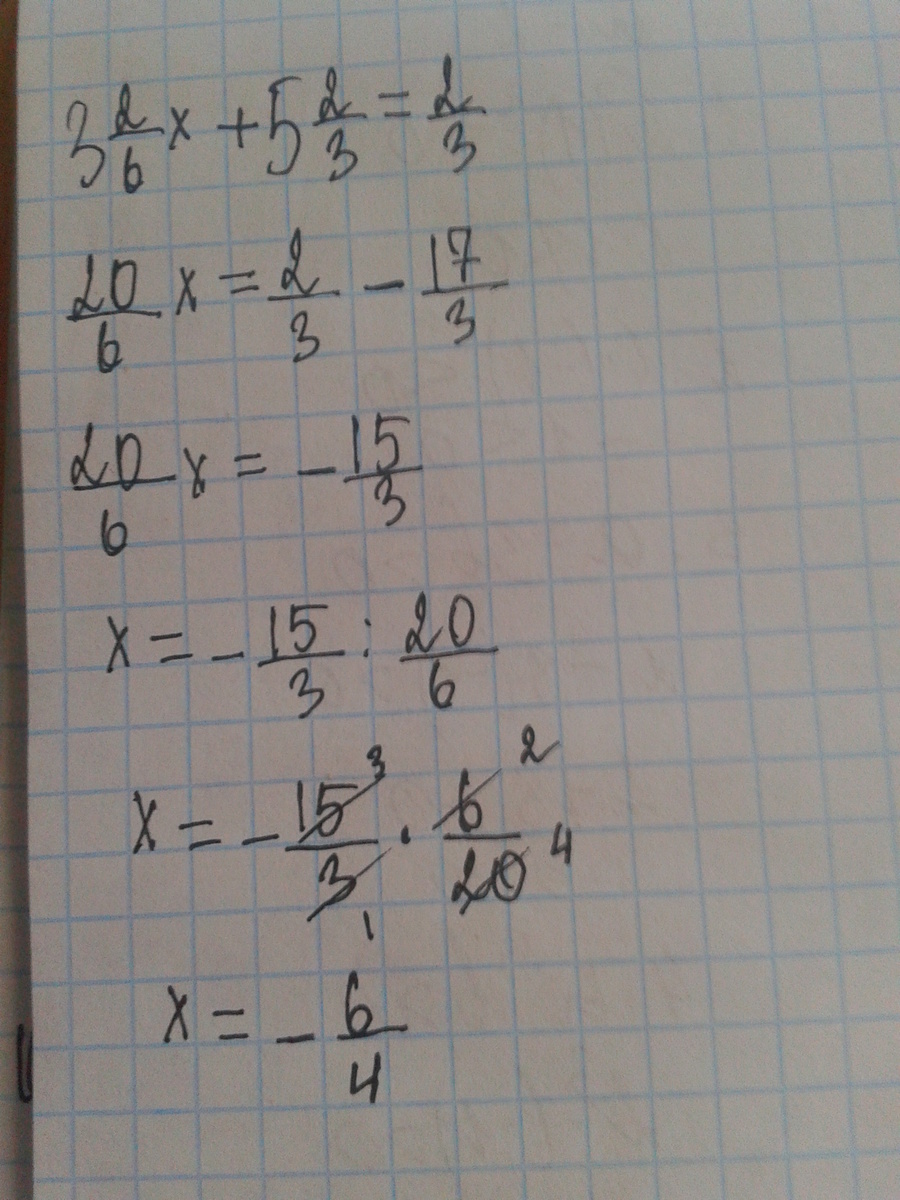 3 2/6 x + 5 2/3 = 2/3
20/6 x = 2/3 - 17/3
20/6 x = - 15/3
x = - 15/3 : 20/6
x = - 15/3 3 1 · 6/20 2 4
x = - 6/4